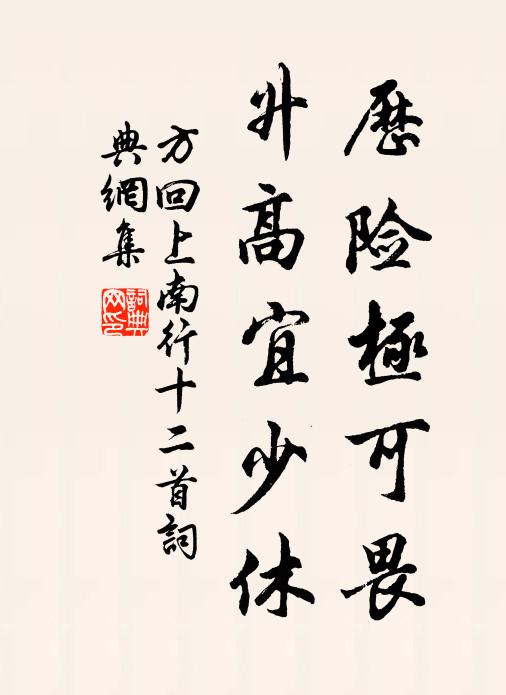 歷险極可畏
升高宜少休
方回上南行十二首詞
典網集
詞典
网印